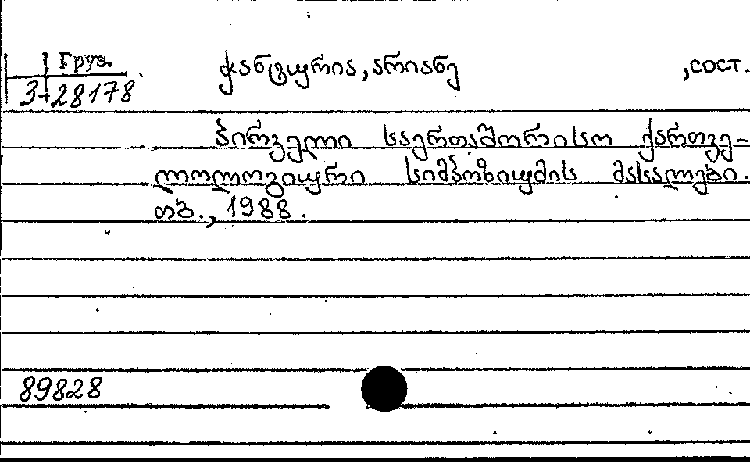 Груз.
3+28178
ჭანტურია, არიანე ,сост.
პირველი საერთაშორისო ქართვე-
ლოლოგიური სიმპოზიუმის მასალები.
თბ., 1988.
89828